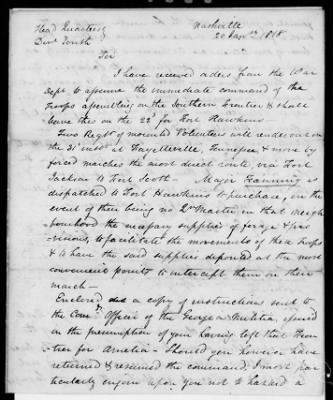 Head Quarters Nashville
Divn South 20 Jany 1818
Sir
I have received orders from the War
Dept to assume the immediate command of the
troops assembling on the Southern frontier & shall
leave this on the 22d for Fort Hawkins—
Two Regts of mounted Volunteers will rendezvous on
the 31st inst at Fayetteville, Tennessee & move by
forced marches the most direct route via Fort
Jackson to Fort Scott— Major Fanning is
dispatched to Fort Hawkins to purchase, on the
event of there being no Qr Master in that neigh-
bourhood the necessary supplies of forage & pro-
visions, to facilitate the movements of these troops
& to have the said supplies deposited at the most
convenient points to intercept them on their
march—
Enclosed is a copy of instructions sent to
the Comg Officer of the Georgia Militia, issued
on the presumption of your having left that fron-
tier for Amelia— Should you however have
returned & resumed the command, I most par-
ticularly enjoin upon you not to hazard a